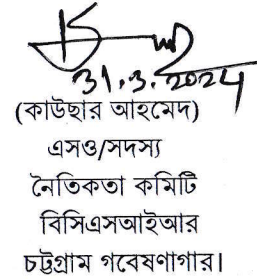 31.3.2024
(কাউছার আহমেদ)
এসও/সদস্য
নৈতিকতা কমিটি
বিসিএসআইআর
চট্টগ্রাম গবেষণাগার।